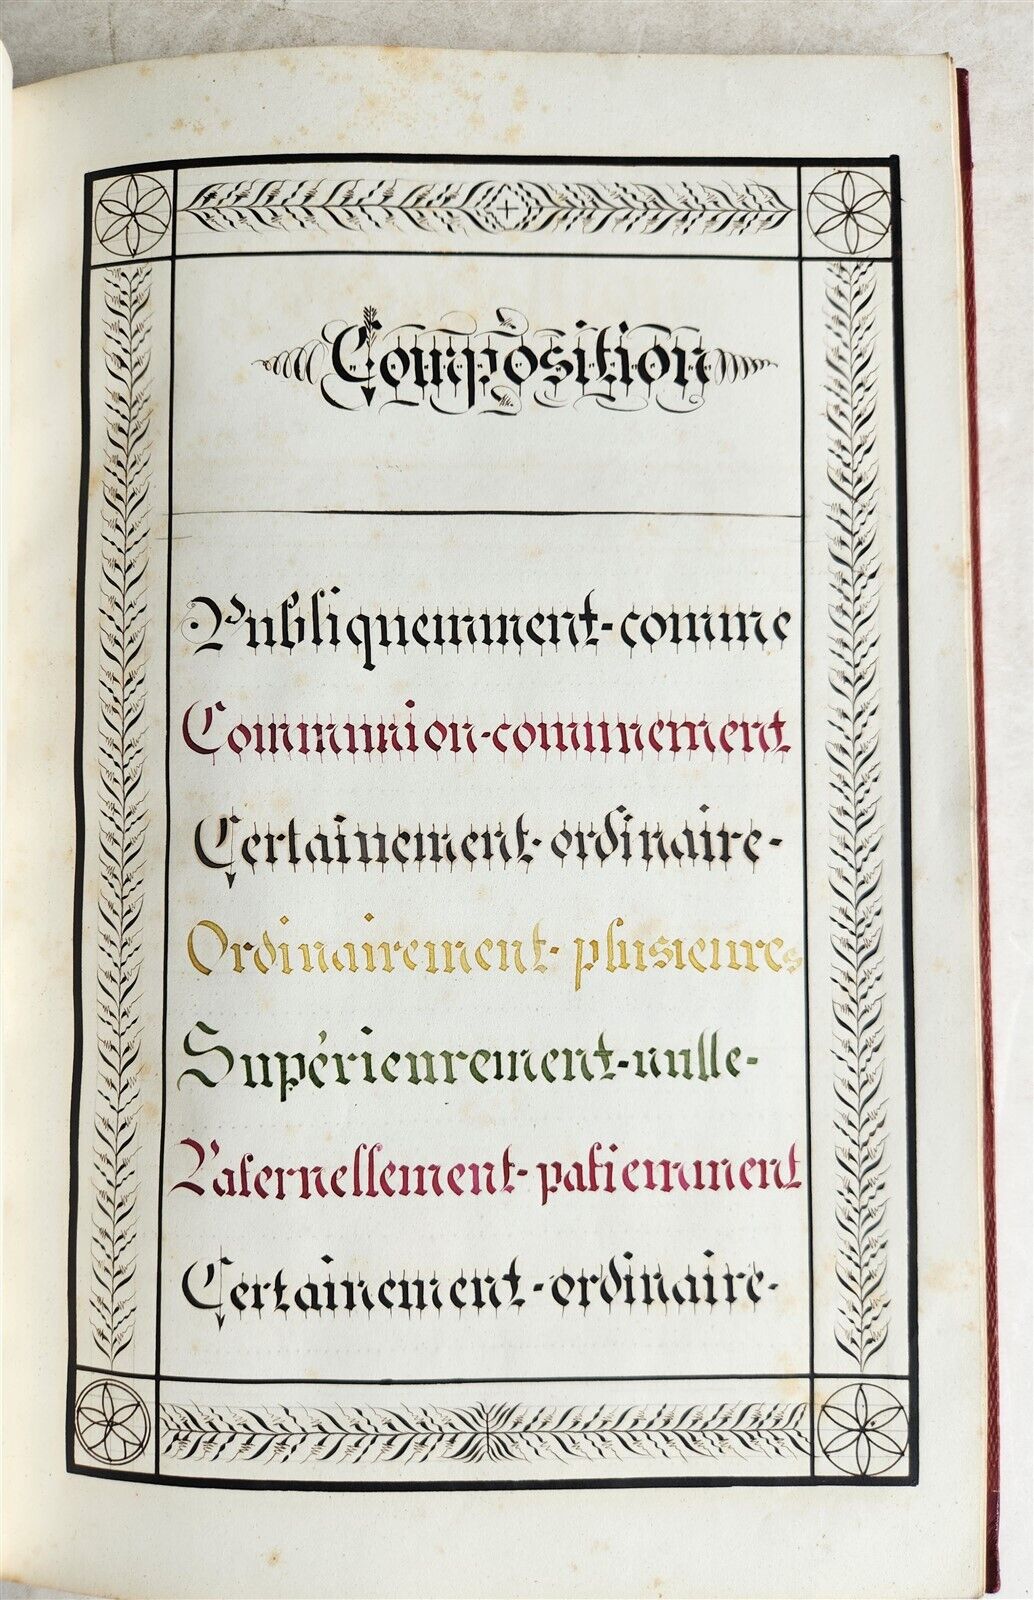 Composition
Publiquemment-comme
Communion-comunement
Certainement-ordinaire-
Ordinairement-plusieures
Supérieurement-nulle-
Paternellement-patiemment
Certainement-ordinaire-